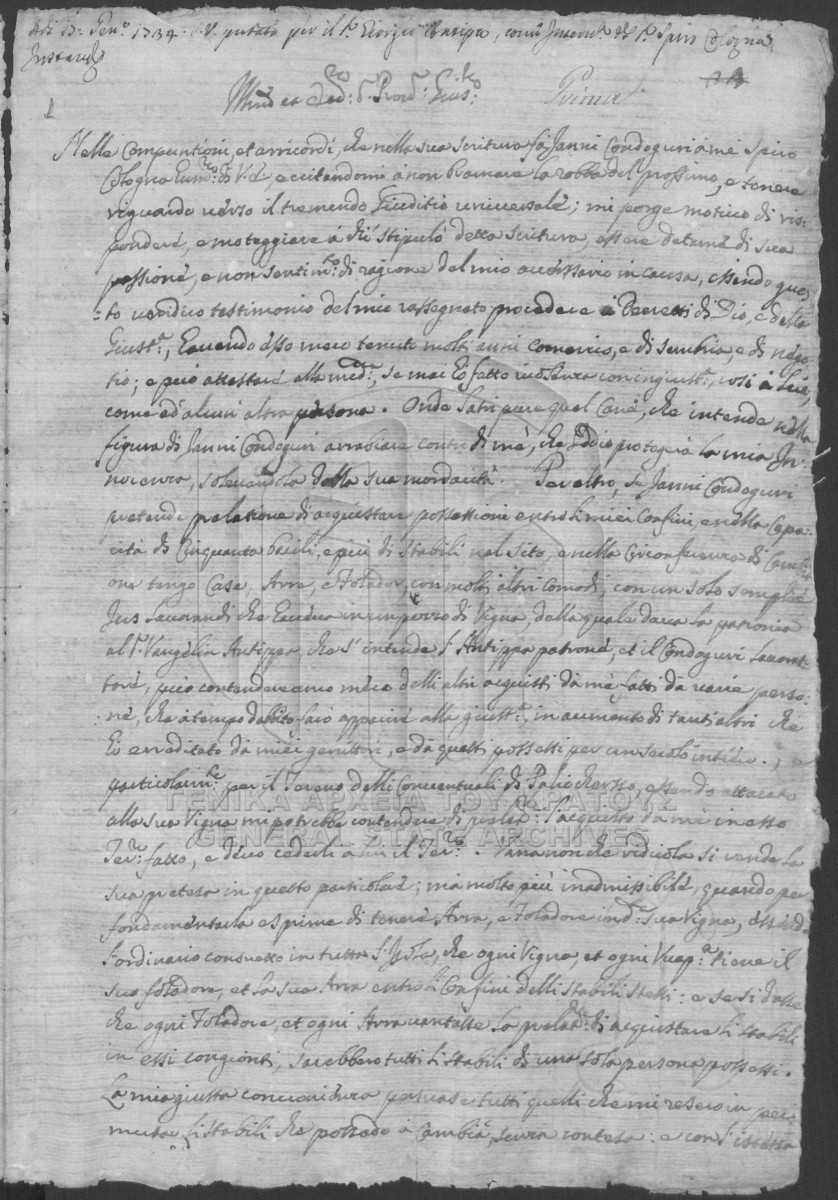 Adi 13. Gen.º 1734. S.V. pntata per il S.r Giorgio Antipa, come Interv.e di S.r Spiro Cologna
Instand.e
Prima
1
Nelle Compuntioni, et arricordi, che nella sua scritura fà Janni Condoguri à me Spiro
Cologna, eccitandomi à non bramare la robba del prossimo, e tenere
riguardo verso il tremendo Giuditio universale; mi porge motivo di ris-
pondere, e moteggiare à chi stipulò detta scritura, essere detamé di sua
passioné, e non sentim.to di ragione del mio avversario in causa, essendo ques-
to veridico testimonio del mio rassegnato procedere à Decretti di Dio, e della
Giust.a, havendo esso meco tenuto molti anni comercio, e di, e di nego-
tio; e può attestaré alla med.ma, se mai hò fatto con ingiust.a, così à lui,
come ad alcuni altra persona. Onde latri pure quel Cane, che intende nella
figura di Janni Condoguri arrabiare contro di me, che Iddio protegerà la mia In-
nocenza, solevandola dalla sua mordacità. Per altro, se Janni Condoguri
pretende prelatione di acquistare possessioni entro li miei Confini, e nella Capa-
cità di Cinquanta bacili, e più di stabili nel sito, e nella circonferenza di
ove tengo Case, Arra, e Folador, con molti altri comodi, con un solo semplice
Jus lavorandi che haveva in un pezzo di Vigna, dalla quale dava la patronia
al S.r Vangelin Antippa, che s'intende l'Antippa patroné, et il Condoguri lavorat-
toré, può contendere anco meco delli altri acquisti da mé fatti da varie perso-
né, che à tempo debito farò apparire alla giust.a, in aumento di tanti altri che
hò erreditato da miei genittori, e da questi possessi per un secolo intiero.
particolarm.te per il Tereno delli Conventuali di Paliocherso, essendo attacato
alla sua Vigna mi potrebbe contendere di prelat.e l'acquisto da me in esso
Ter.no fatto, e devo cederli à lui il Ter.no. Vana non che ridicola si rende la
sua pretesa in questo particolaré; mà molto più inadmissibile, quando per
fondamentarla esprime di teneré Arra, e Foladore in d.a sua Vigna, essendo
l'ordinario consueto in tutta l'Isola, che ogni Vigna, et ogni tiene il
suo foladore, et la sua Arra entro li Confini delli stabili stessi: e se si dasse
che ogni Foladore, et ogni Arra vantasse la prelat.e di acquistare li stabili
in essi congionti, sarebbero tutti li stabili di una sola persona possessi.
La mia giusta persuase tutti quelli che mi resero in per-
muta li stabili che possedo à Cambià, senza contesa: e con l'istessa
ΓΕΝΙΚΑ ΑΡΧΕΙΑ ΤΟΥ ΚΡΑΤΟΥΣ
GENERAL STATE ARCHIVES